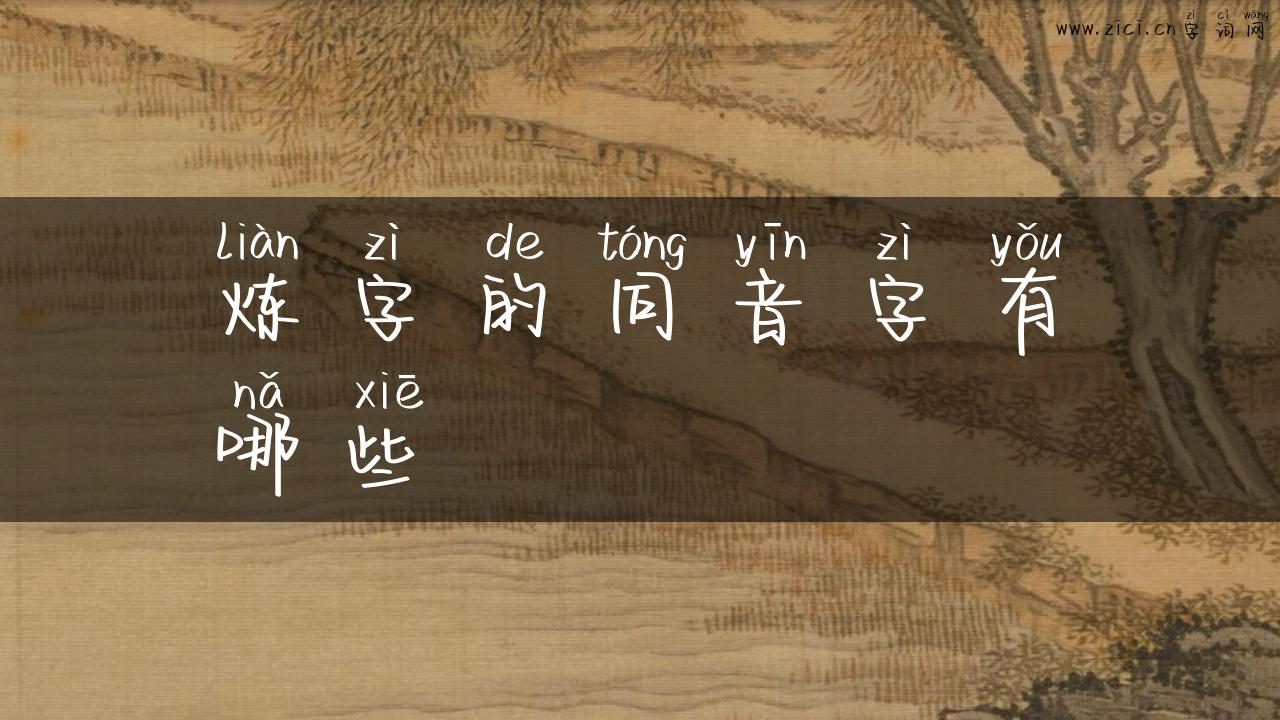 zì cí wǎng
www.zici.cn 字 词 网
liàn zì de tóng yīn zì yǒu
炼 字 的 同 音 字 有
nǎ xiē
哪 些